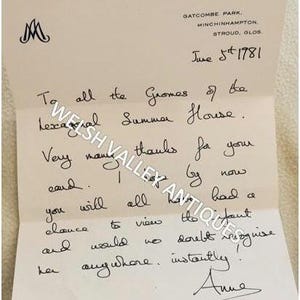 GATCOMBE PARK,
MINCHINHAMPTON,
STROUD, GLOS.
June 5th 1981
To all the Gnomes of the
hexagonal Summer House.
Very many thanks for your
card. I by now
you will all had a
chance to view the
and would no doubt recognise
her anywhere instantly!
Anne
WELSH VALLEY ANTIQUES